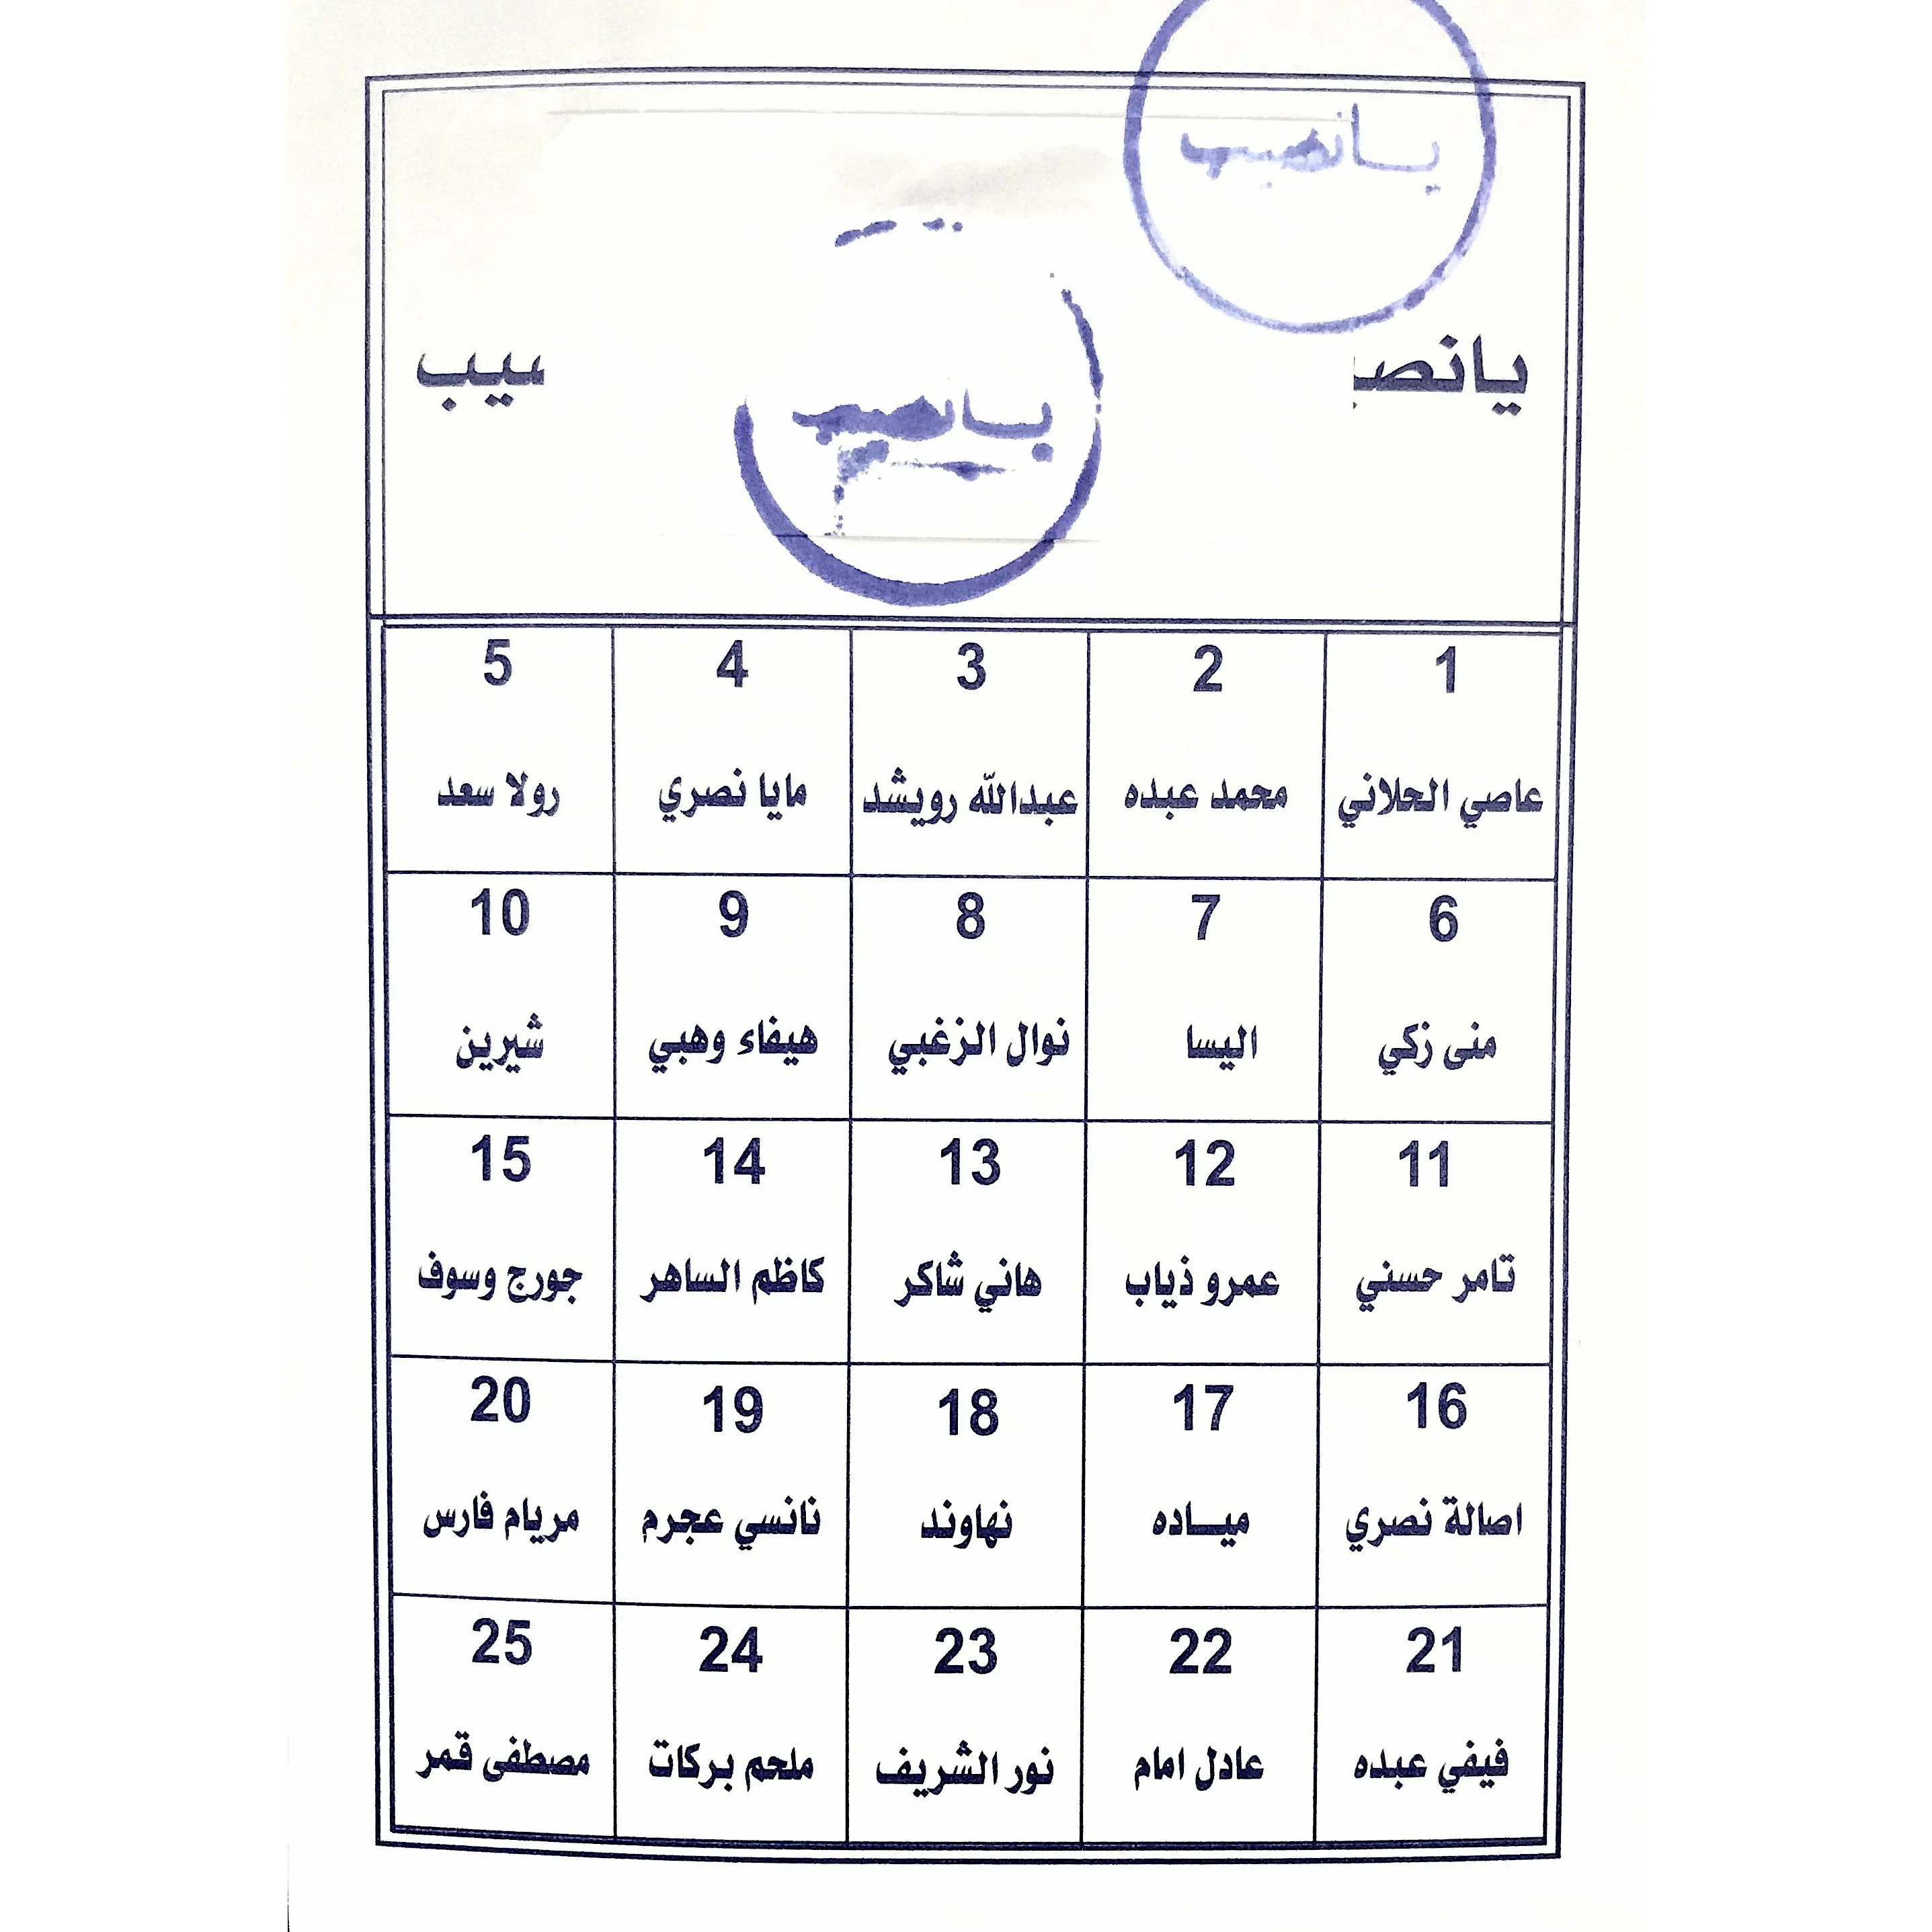 يانصيب
يانصيب
يانصيب
1 2 3 4 5
عاصي الحلاني محمد عبده عبدالله رويشد مايا نصري رولا سعد
6 7 8 9 10
منى زكي اليسا نوال الزغبي هيفاء وهبي شيرين
11 12 13 14 15
تامر حسني عمرو ذياب هاني شاكر كاظم الساهر جورج وسوف
16 17 18 19 20
اصالة نصري ميــاده نهاوند نانسي عجرم مريام فارس
21 22 23 24 25
فيفي عبده عادل امام نور الشريف ملحم بركات مصطفى قمر